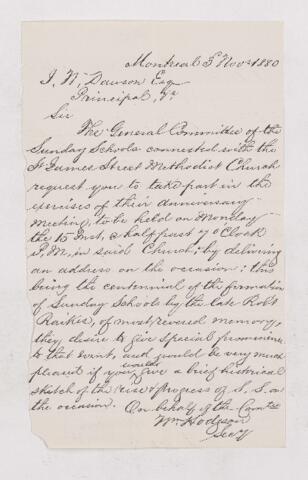 Montreal 5 Nov 1880
J. W. Dawson Esq
Principal &c
Sir
The General Committee of the
Sunday Schools connected with the
St James Street Methodist Church
request you to take part in the
exercises of their anniversary
Meeting, to be held on Monday
the 15 Inst, @ half past 7 o'Clock
P.M, in said Church; by delivering
an address on the occasion: this
being the centennial of the formation
of Sunday Schools by the late Robt
Raikes, of most revered memory,
they desire to give special prominence
to that event, and would be very much
pleased if you would give a brief historical
sketch of the rise & progress of S. S. on
the occasion. On behalf of the Comtee
Wm Hodgson
Secy